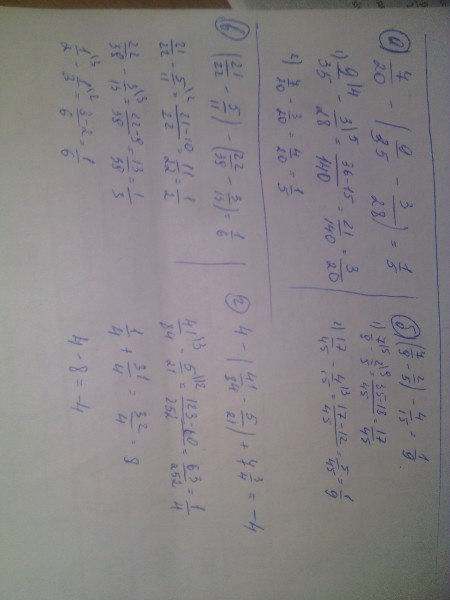 а) 7/20 - (9/35 - 3/28) = 1/5
1) 9/35 \4 - 3/28 \5 = 36-15/140 = 21/140 = 3/20
2) 7/20 - 3/20 = 4/20 = 1/5
б) (7/9 - 2/5) - 4/15 = 1/9
1) 7/9 \5 - 2/5 \9 = 35-18/45 = 17/45
2) 17/45 - 4/15 \3 = 17-12/45 = 5/45 = 1/9
в) (21/22 - 5/11) - (22/39 - 3/13) = 1/6
21/22 - 5/11 \2 = 21-10/22 = 11/22 = 1/2
22/39 - 3/13 \3 = 22-9/39 = 13/39 = 1/3
1/2 \3 - 1/3 \2 = 3-2/6 = 1/6
г) 4 - (41/84 - 5/21) + 4 3/4 = -4
41/84 \3 - 5/21 \12 = 123-60/252 = 63/252 = 1/4
1/4 + 31/4 = 32/4 = 8
4 - 8 = -4